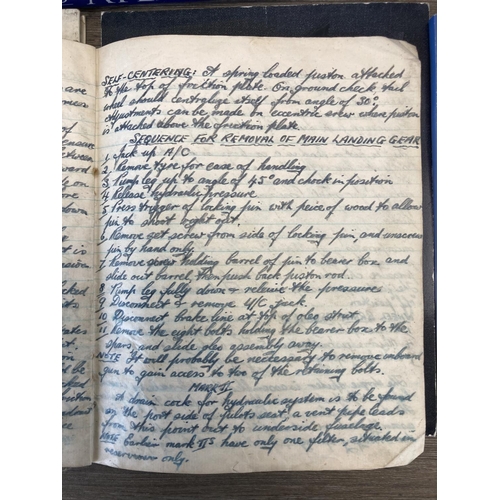 SELF-CENTERING: A spring loaded piston attached
to the top of friction plate. On ground check, tail
wheel should centralize itself from angle of 30°,
adjustments can be made on eccentric screw where piston
is attached above the friction plate.
SEQUENCE FOR REMOVAL OF MAIN LANDING GEAR
1. Jack up A/C
2. Remove tyre for ease of handling
3. Pump leg up to angle of 45° and chock in position
4. Release hydraulic pressure
5. Press trigger of locking pin with peice of wood to allow
pin to shoot right out.
6. Remove get screw from side of locking pin, and unscrew
pin by hand only.
7. Remove screw holding barrel of pin to bearer box and
slide out barrel, then push back piston rod.
8. Pump leg fully down & releive the pressure
9. Disconnect & remove U/C jack.
10. Disconnect brake line at top of oleo strut.
11. Remove the eight bolts holding the bearer box to the
spars, and slide oleo assembly away.
NOTE It will probably be necessary to remove inboard
gun to gain access to two of the retaining bolts.
MARK II
A drain cock for hydraulic system is to be found
on the port side of pilots seat, a vent pipe leads
from this point out to underside fuselage.
NOTE Earlier mark IIs have only one filter, situated in
reservoir only.